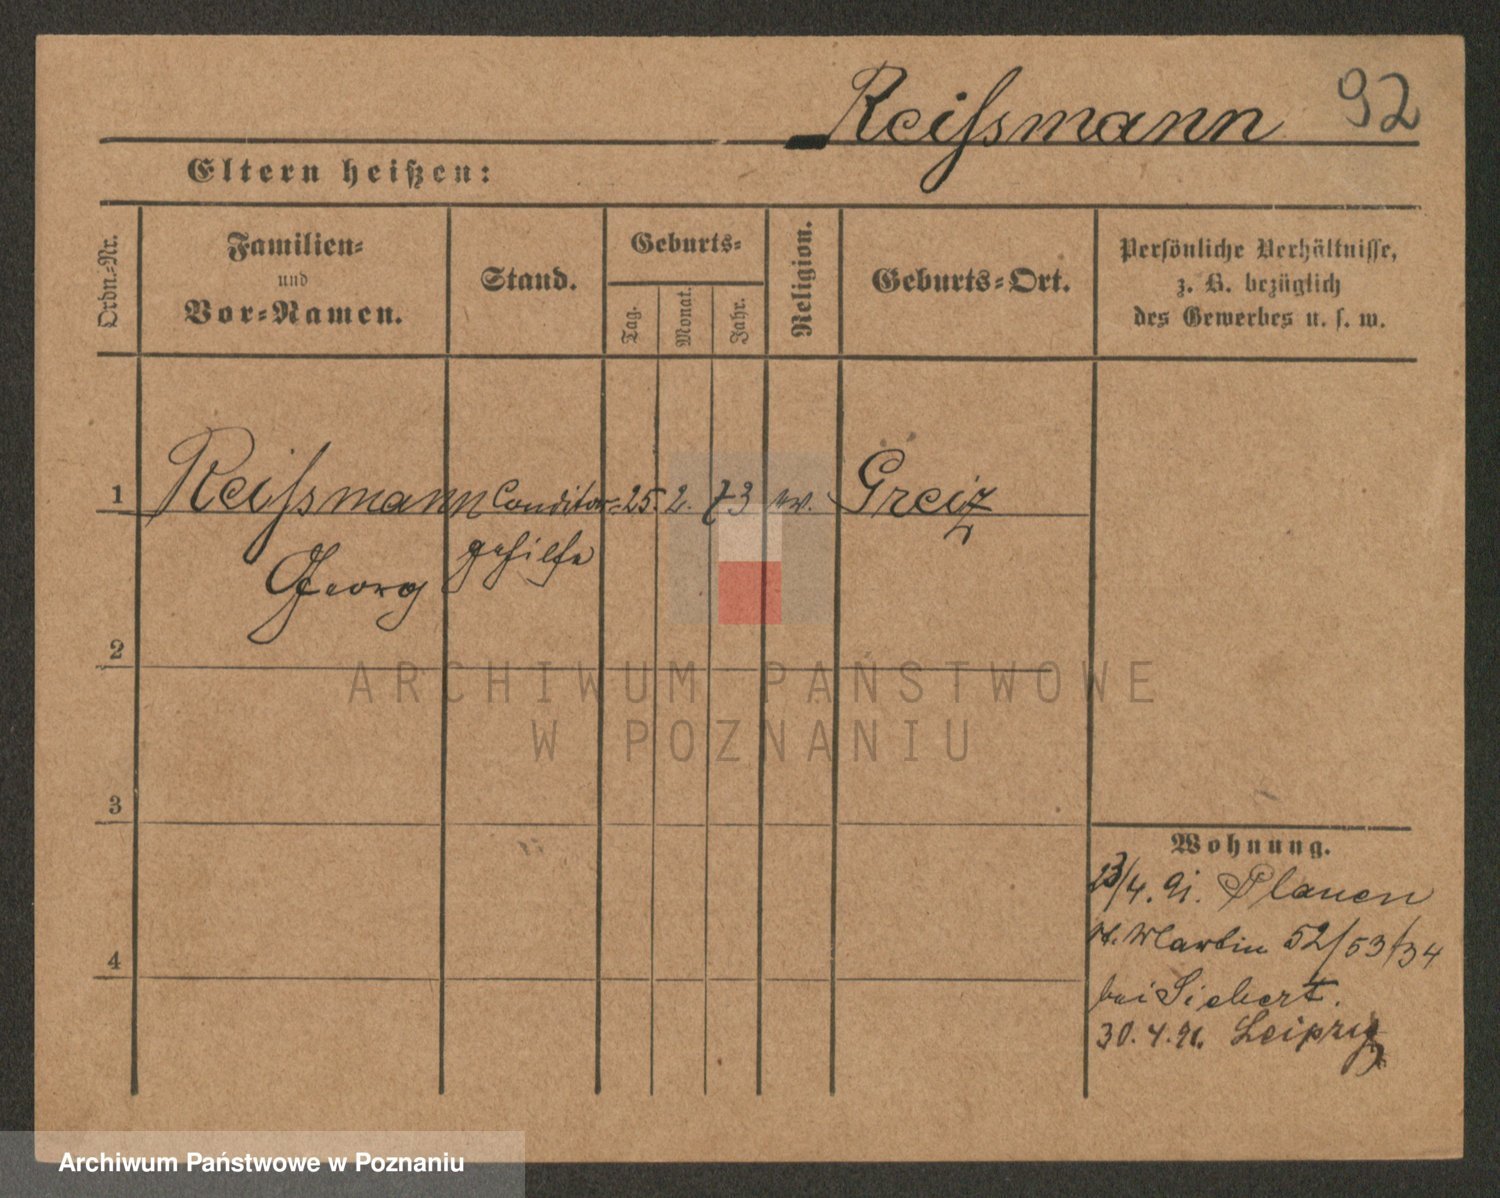 Reiſsmann 92
Eltern heißen:
Ordn.-Nr.
Familien-
und
Vor-Namen.
Stand.
Geburts-
Tag.
Monat.
Jahr.
Religion.
Geburts-Ort.
Persönliche Verhältnisse,
z. B. bezüglich
des Gewerbes u. s. w.
1 Reiſsmann Conditor- 25. 2. 73 ev. Greiz
Georg gehilfe
2
3
4
Wohnung.
23/4. 91. Plauen
St. Martin 52/53/34
bei Siebert.
30. 4. 91. Leipzig
ARCHIWUM PAŃSTWOWE
W POZNANIU
Archiwum Państwowe w Poznaniu